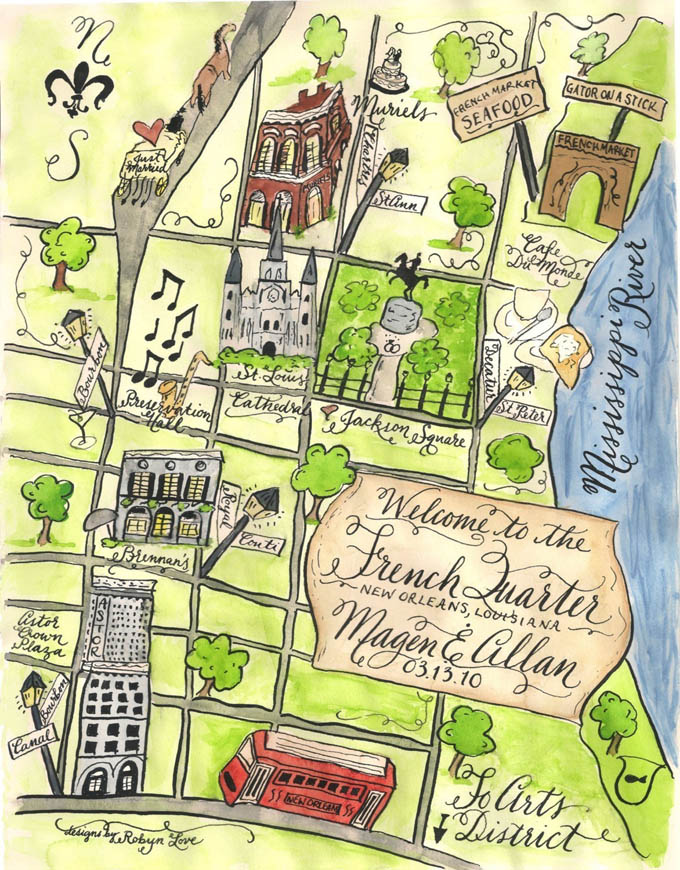 N
S
Just
Married
Muriels
Chartres
St Ann
FRENCH MARKET
SEAFOOD
GATOR ON A STICK
FRENCH MARKET
Cafe
Du Monde
Mississippi River
Bourbon
Preservation
Hall
St. Louis
Cathedral
Jackson Square
Decatur
St Peter
Royal
Conti
Brennan's
Welcome to the
French Quarter
NEW ORLEANS, LOUISIANA
Magen & Allan
03.13.10
Astor
Crown
Plaza
ASTOR
Bourbon
Canal
NEW ORLEANS
To Arts
District
designs by Robyn Love